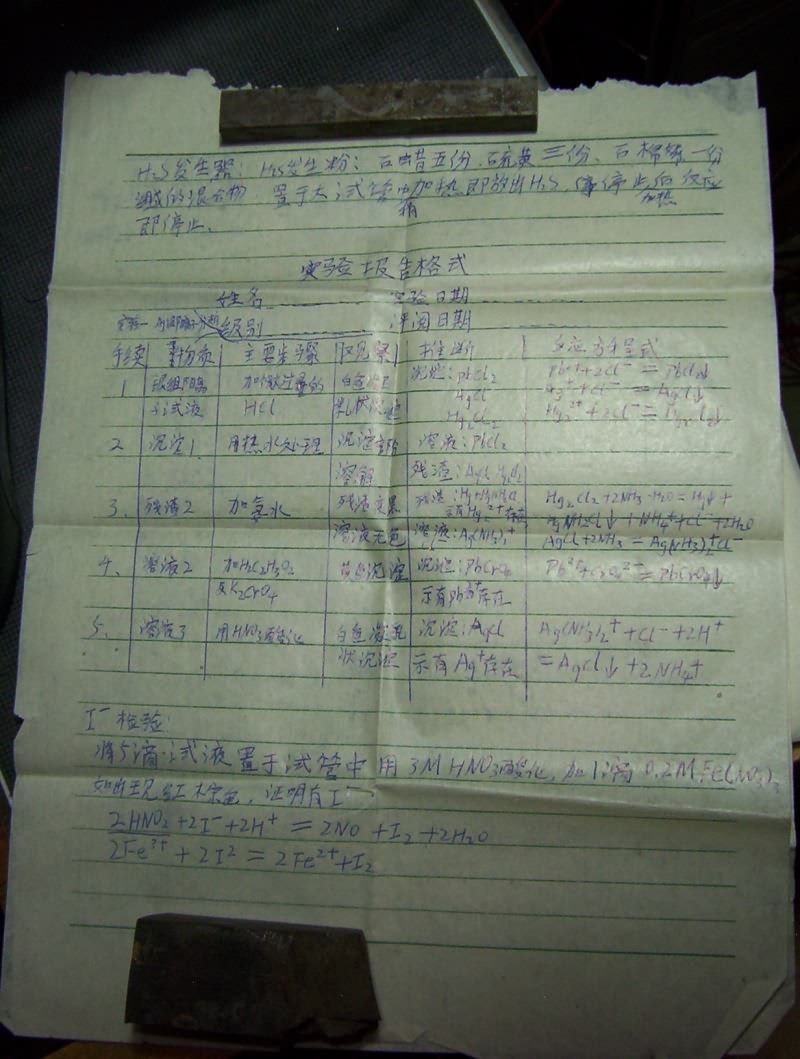 H₂S发生器：H₂S发生粉：石蜡五份、硫黄三份、石棉绒一份
的混合物置于大试管中稍加热即放出H₂S，停止加热后反应
即停止。
实验报告格式
姓名 实验日期
实验一 级别 评阅日期
手续 物质 主要步骤 现象 反应方程式
1 银组阳离子试液 加微过量的HCl 白色 状沉淀 沉淀：PbCl₂ AgCl Hg₂Cl₂ Pb²⁺+2Cl⁻=PbCl₂↓ Ag⁺+Cl⁻=AgCl↓ Hg₂²⁺+2Cl⁻=Hg₂Cl₂↓
2 沉淀1 用热水处理 沉淀部分溶解 溶液：PbCl₂ 残渣：AgCl Hg₂Cl₂
3. 残渣2 加氨水 残渣变黑 溶液无色 残渣：Hg+HgNH₂Cl 示有Hg₂²⁺存在 溶液：Ag(NH₃)₂⁺ Cl⁻ Hg₂Cl₂+2NH₃·H₂O=Hg↓+HgNH₂Cl↓+NH₄⁺+Cl⁻+2H₂O AgCl+2NH₃=Ag(NH₃)₂⁺Cl⁻
4、 溶液2 加HC₂H₃O₂及K₂CrO₄ 黄色沉淀 沉淀：PbCrO₄ 示有Pb²⁺存在 Pb²⁺+CrO₄²⁻=PbCrO₄↓
5、 溶液3 用HNO₃酸化 白色凝乳状沉淀 沉淀：AgCl 示有Ag⁺存在 Ag(NH₃)₂⁺+Cl⁻+2H⁺=AgCl↓+2NH₄⁺
I⁻检验：
将5滴试液置于试管中用3M HNO₃酸化，加1滴0.2M Fe(NO₃)₃
如出现红棕色，证明有I⁻
2HNO₂+2I⁻+2H⁺=2NO+I₂+2H₂O
2Fe³⁺+2I²=2Fe²⁺+I₂